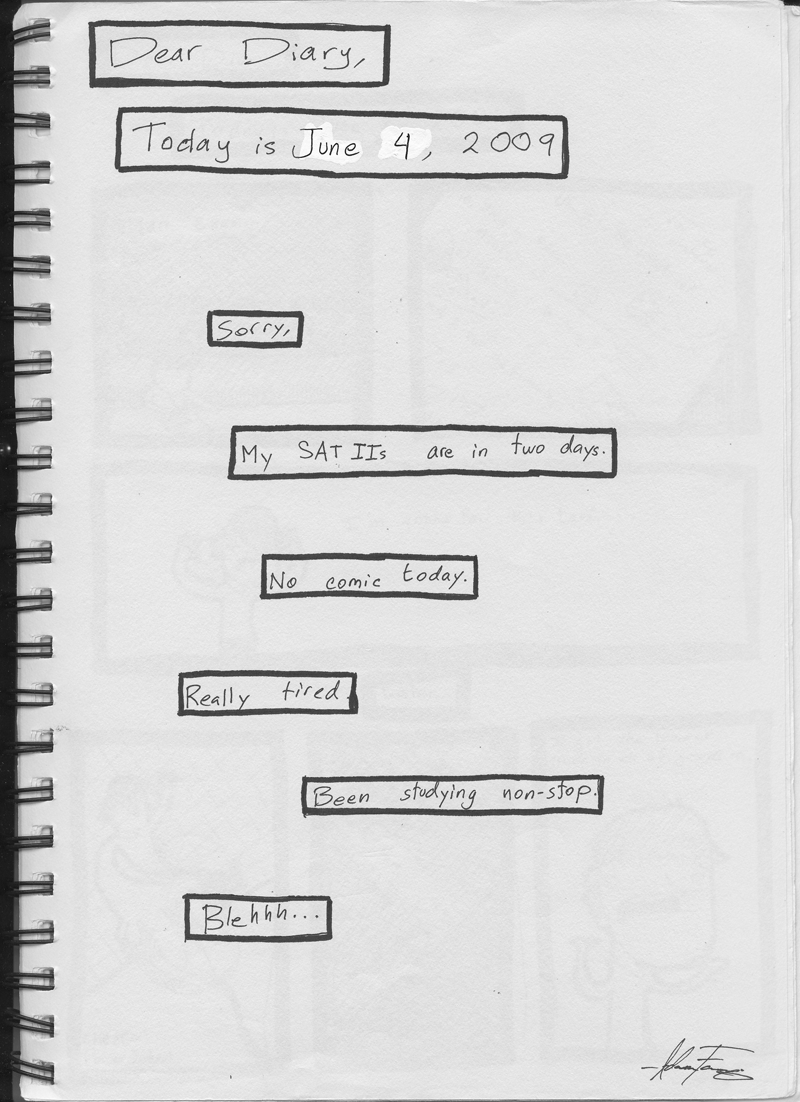 Dear Diary,
Today is June 4, 2009
Sorry,
My SAT IIs are in two days.
No comic today.
Really tired.
Been studying non-stop.
Blehhh...